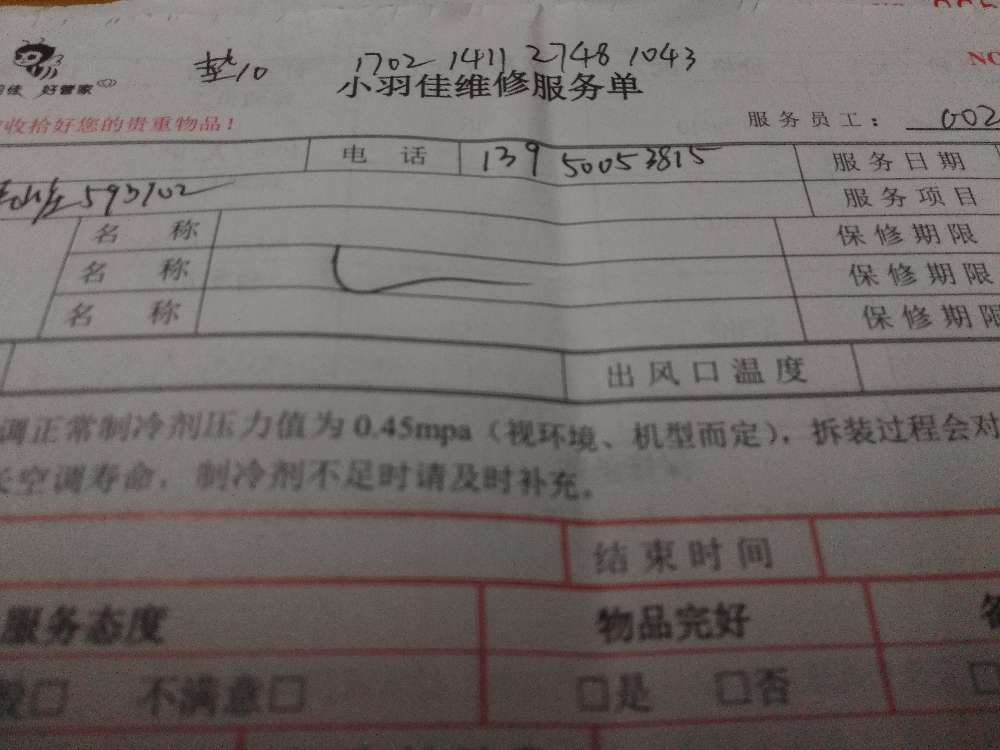 垫10 1702 1411 2748 1043
NO
佳 好管家
小羽佳维修服务单
收拾好您的贵重物品!
服务员工: 002
电 话 139 50053815 服务日期
593702 服务项目
名 称 保修期限
名 称 保修期限
名 称 保修期限
出风口温度
调正常制冷剂压力值为0.45mpa(视环境、机型而定),拆装过程会对
长空调寿命,制冷剂不足时请及时补充。
结束时间
服务态度 物品完好
□ 不满意□ □是 □否